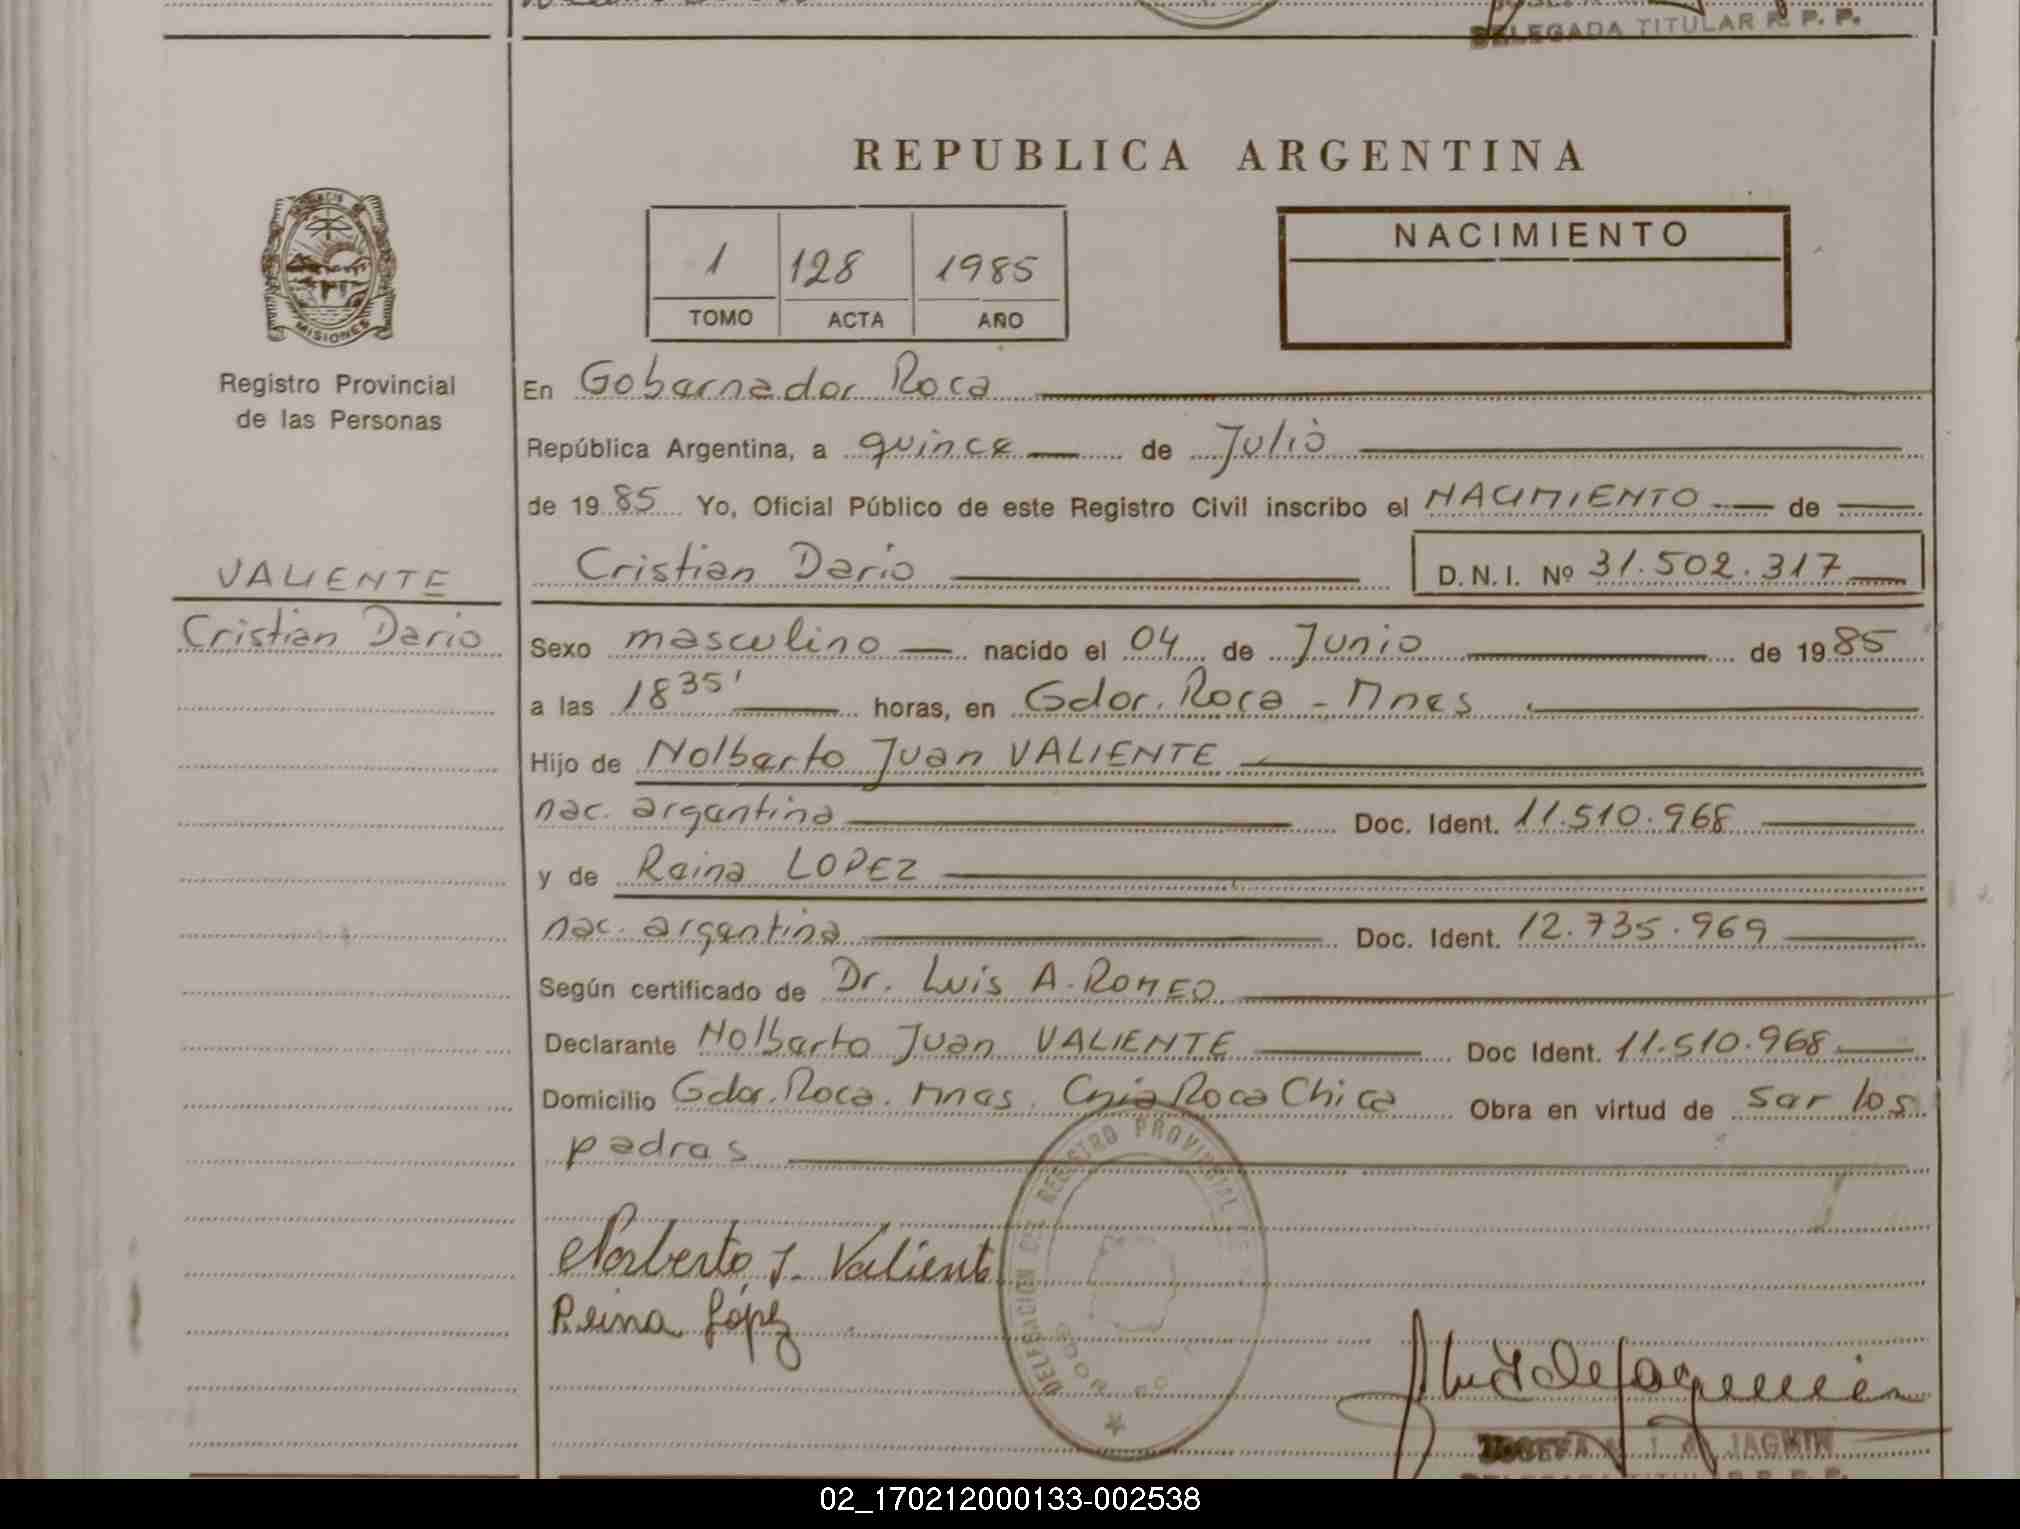 DELEGADA TITULAR R. P. P.
REPUBLICA ARGENTINA
NACIMIENTO
1 128 1985
TOMO ACTA AÑO
MISIONES
Registro Provincial
de las Personas
En Gobernador Roca
República Argentina, a quince de Julio
de 1985 Yo, Oficial Público de este Registro Civil inscribo el NACIMIENTO de
VALIENTE
Cristian Dario
Cristian Dario D.N.I. Nº 31.502.317
Sexo masculino nacido el 04 de Junio de 1985
a las 18 35' horas, en Gdor. Roca - Mnes
Hijo de Nolberto Juan VALIENTE
nac. argentina Doc. Ident. 11.510.968
y de Reina LOPEZ
nac. argentina Doc. Ident. 12.735.969
Según certificado de Dr. Luis A. ROMEO
Declarante Nolberto Juan VALIENTE Doc Ident. 11.510.968
Domicilio Gdor. Roca. Mnes. Cnia Roca Chica Obra en virtud de ser los
padres
DELEGACION DEL REGISTRO PROVINCIAL
Norberto J. Valiente
Reina López
JAGMIN
02_170212000133-002538